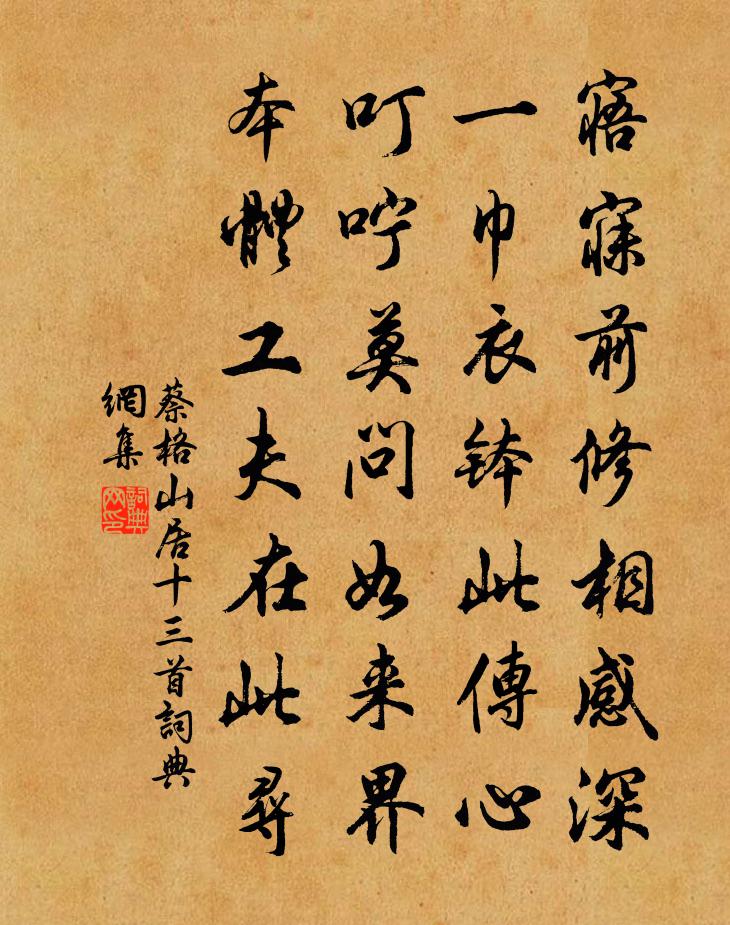 寤寐前修相感深
一巾衣鉢此傳心
叮嚀莫問如来界
本體工夫在此尋
蔡格山居十三首詞典
網集
詞典
网印